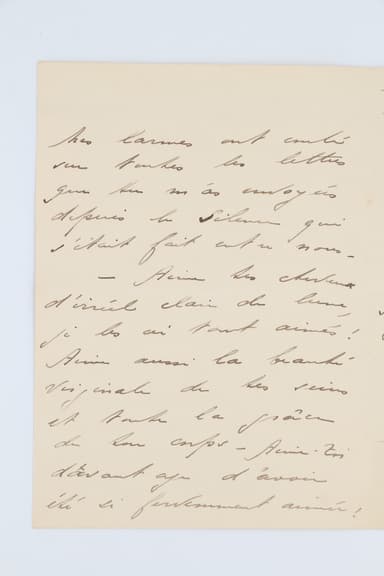 Mes larmes ont coulé
sur toutes les lettres
que tu m'as envoyés
depuis le silence qui
s'était fait entre nous -
— Aime tes cheveux
d'irréel clair de lune
je les ai tant aimés !
Aime aussi la beauté
virginale de tes seins
et toute la grâce
de ton corps - Aime-toi
davantage d'avoir
été si fortement aimée !